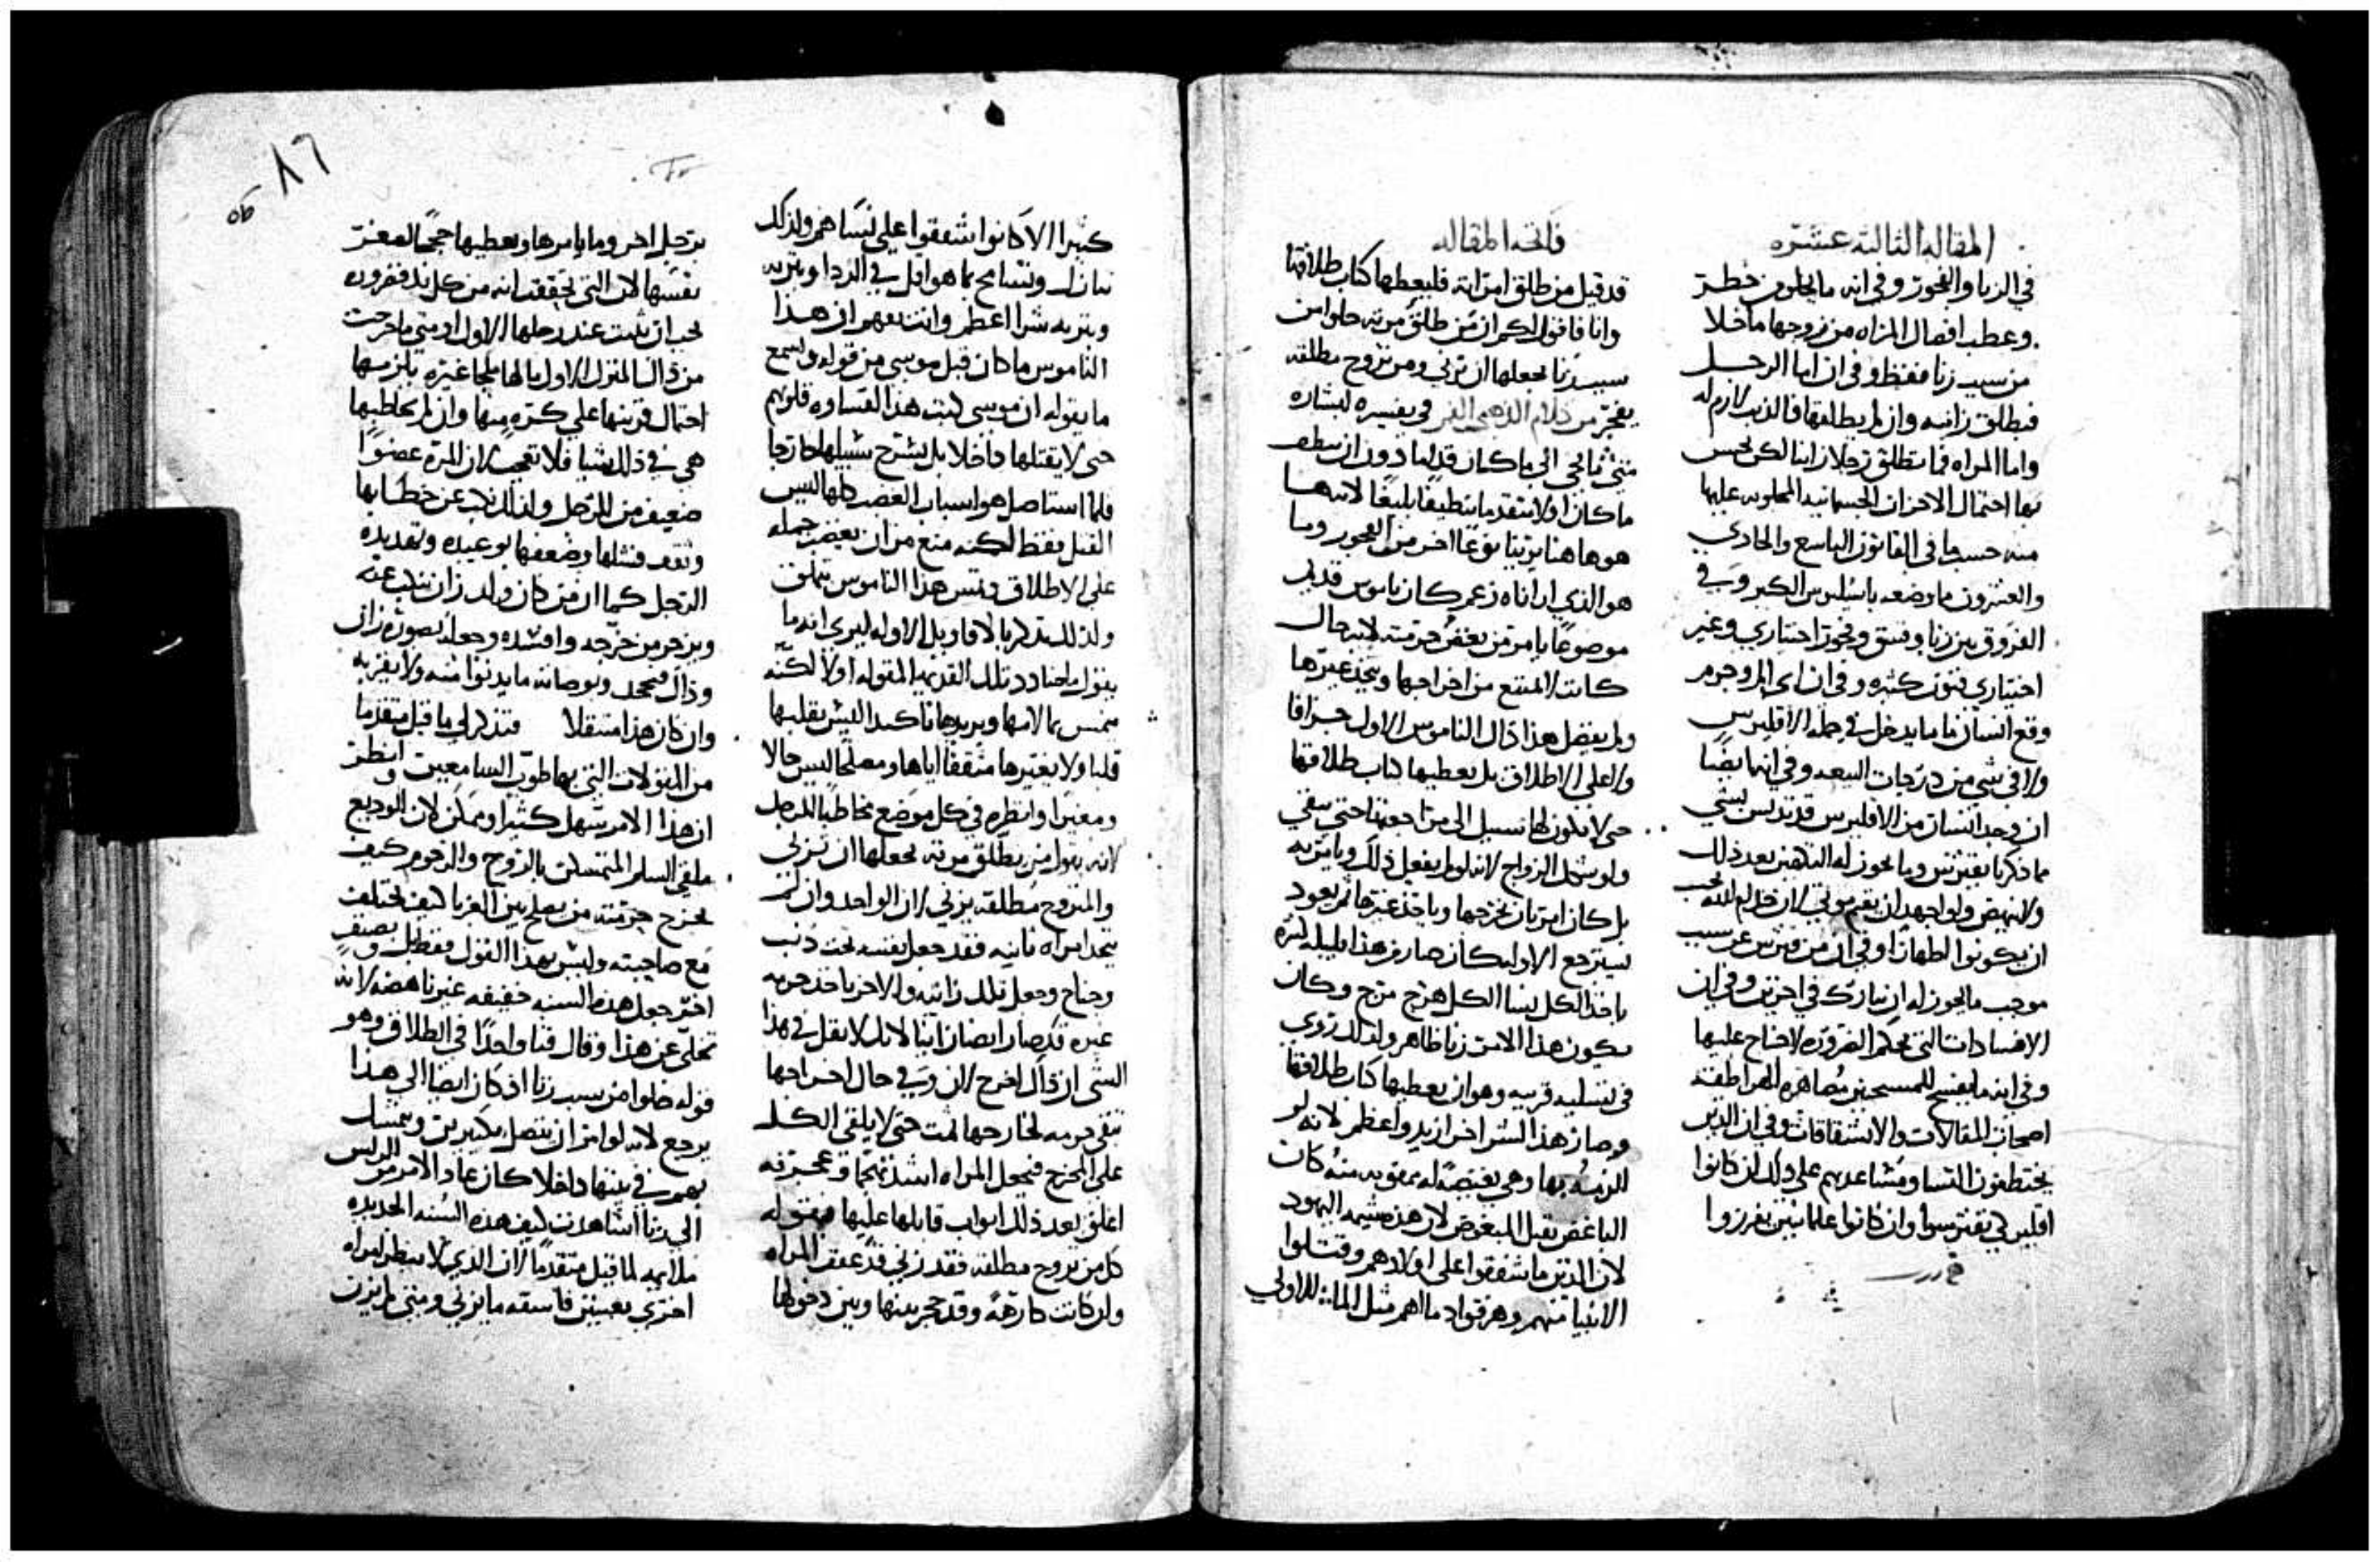 المقاله الثالثه عشره
في الزنا والفجور وفي انه ما يخلو من خطر
وعطب افصال المراه من زوجها ما خلا
من سبب زنا فقط وفي ان اما الرجل
فيطلق زانيه وان لم يطلقها فالذنب لازم له
واما المراه فما تطلق رجلا زانيا لكن يحسن
بها احتمال الاحزان الجسمانيه المجلوبه عليها
منه حسبما في القانون التاسع والحادي
والعشرون ما وضعه باسيليوس الكبير وفي
الفروق بين زنا وفسق وفجور اختياري وغير
اختياري فنون كثيره وفي ان اي اثر وجرم
وقع انسان ما ما يدخل في جملة الاقليرس
ولا في شي من درجات البيعه وفي انه ايضا
ان وجد انسان من الاقليرس قد تدنس بشي
مما ذكرنا يفترش وما يجوز له التكهن بعد ذلك
ولا ينهض ولو اجهد ان يقيم موتي لان خدام الله يجب
ان يكونوا اطهارا وفي ان من فترس عن سبب
موجب ما يجوز له ان يبارك في اخرين وفي ان
الافسادات التي بحكم الضروره لا جناح عليها
وفي انه ما يفسح للمسيحيين مصاهرة الهراطقه
اصحاب المقالات والانشقاقات وفي ان الذين
يختطفون النسا ومساعديهم علي ذلك ان كانوا
اقليريكي يفترسوا وان كانوا علمانيين يفرزوا
فاتحة المقاله
قد قيل من طلق امراته فليعطها كتاب طلاقها
وانا فاقول لكم ان من طلق مرته خلوا من
سبب زنا يجعلها ان تزني ومن تزوج مطلقه
يفجر من كلام الذهبي الفم في تفسيره لبشاره
متي ثم الحي الي ما كان قدامنا دون ان ينظف
ما كان اولا متقدما تنظيفا بليغا لانه ها
هو هاهنا يرينا نوعا اخر من الفجور وما
هو الذي ارانا زعم كان ناموس قديم
موضوعا يامر من يبغض حرمته لايه حال
كانت لا يمتنع من اخراجها وياخذ غيرها
ولم يفعل هذا ذاك الناموس الاول جزافا
ولا علي الاطلاق بل يعطيها كتاب طلاقها
حتي لا يكون لها سبيل الي مراجعتها حتي يبقي
ولو شكل الزواج لانه لو لم يفعل ذلك ويامر به
بل كان امر بان يخرجها وياخذ غيرها ثم يعود
يسترجع الاوله كان صار من هذا بلبله كثيره
ياخذ الكل نسا الكل هرج مرج وكان
يكون هذا الامر زنا ظاهر ولذلك روي
في تسليه قريبه وهو ان يعطيها كتاب طلاقها
وصار هذا الشر اخر ازيد واعظم لانه لو
الزمه بها وهي بغيضه له بمقوبه منه كان
الباغض يقتل المبغوض لان هذه شيمة اليهود
لان الذين ما شفقوا علي اولادهم وقتلوا
الانبيا منهم وهرقوا دماهم مثل الما للاولي
٨٦
كثيرا الا كانوا اشفقوا علي نساهم ولذلك
تنازل وتسامح بما هو اقل في الردا وبتر به
وبتر به شرا اعظم وانت تفهم ان هذا
الناموس ما كان قبل موسي من قوله واسمع
ما يقوله ان موسي كتب هذا لقساوة قلوبكم
حتي لا يقتلها داخلا بل يشرح سبيلها خارجا
فلما استاصل هو اسباب الغضب كلها ليس
القتل فقط لكنه منع من ان يغضب جمله
علي الاطلاق وليس هذا الناموس يتعلق
ولذلك يتذكر بالاقاويل الاوله ليري انه ما
يقول ما يضادد تلك القديمه المقوله اولا لكنه
يتمسك بها ويزيدها تاكيدا ليس يقلبها
قلبا ولا يغيرها مثقفا اياها ومصلحا ليس حالا
ومغيرا وانظره في كل موضع يخاطب الرجل
لانه يقول من يطلق مرته يجعلها ان تزني
والمتزوج مطلقه يزني لان الواحد وان لم
يتخذ امراه ثانيه فقد جعل نفسه تحت ذنب
وجناح وجعل تلك زانيه والاخر باخذ حرمه
غيره قد صار ايضا زانيا لانك لا تقل في هذا
الشي ان ذاك اخرج لان وفي حال اخراجها
تبقي حرمه لمخارجها ثمت حتي لا يلقي الكل
علي المخرج فيجعل المراه اشد تهجما وعجرفه
اغلق بعد ذلك ابواب قابلها عليها فبقوله
كل من تزوج مطلقه فقد زني قد عفف المراه
ولو كانت كارهه وقد حجز بينها وبين دخولها
برجل اخر وما يامرها ويعطيها حججا لمغر
نفسها لان التي تحققت انه من كل بد ضروره
يجب ان تلبث عند رجلها الاول او متي ما خرجت
من ذاك المنزل الاول ما لها ملجا غيره يلزمها
احتمال قرينها علي كره منها وان لم يخاطبها
هي في ذلك شيا فلا تعجب لان المره عضوا
ضعيف من الرجل ولذلك نكب عن خطابها
وثقف فشلها وضعفها بوعيده وتهديده
الرجل كما ان من كان ولد زان ينكب عنه
ويزجر من خرجه وافسده وجعله بصورة زان
وان كان هذا مستثقلا فتذكر لي ما قيل متقدما
من المقولات التي بها طوب السامعين وانظر
ان هذا الامر سهل كثيرا وممكن لان الوديع
ملقي السلم المتمسكن بالروح والرحوم كيف
يخرج حرمته من يصلح بين الغربا كيف يختلف
مع صاحبته وليس بهذا القول فقط بل وبصنف
اخر جعل هذه السنه خفيفه غير ناهضه لانه
تخلي عن هذا وقال فنا واحدا في الطلاق وهو
قوله خلوا من سبب زنا اذ كان ايضا الي هذا
يرجع لانه لو امر ان تتصل بكثيرين ويتمسك
بهم في بيتها داخلا كان عاد الامر من الراس
الي زنا اشاهدت كيف هذه السنه الجديده
ملايمه لما قيل متقدما لان الذي لا ينظر امراه
اخري بعينين فاسقه ما يزني ومتي لم يزن